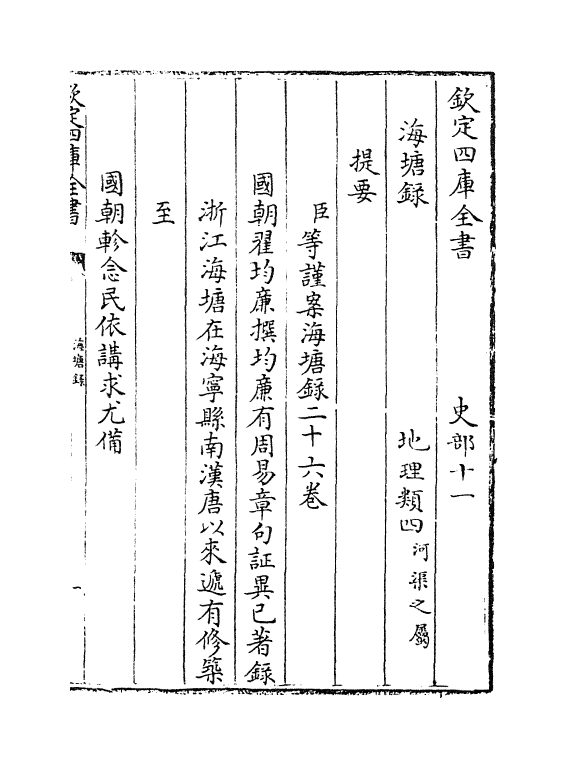 欽定四庫全書　史部十一
海塘錄　地理類四河渠之屬
提要
臣等謹案海塘錄二十六卷
國朝翟均廉撰均廉有周易章句証異已著錄
浙江海塘在海寧縣南漢唐以來遞有修築
至
國朝軫念民依講求尤備
欽定四庫全書
海塘錄
一